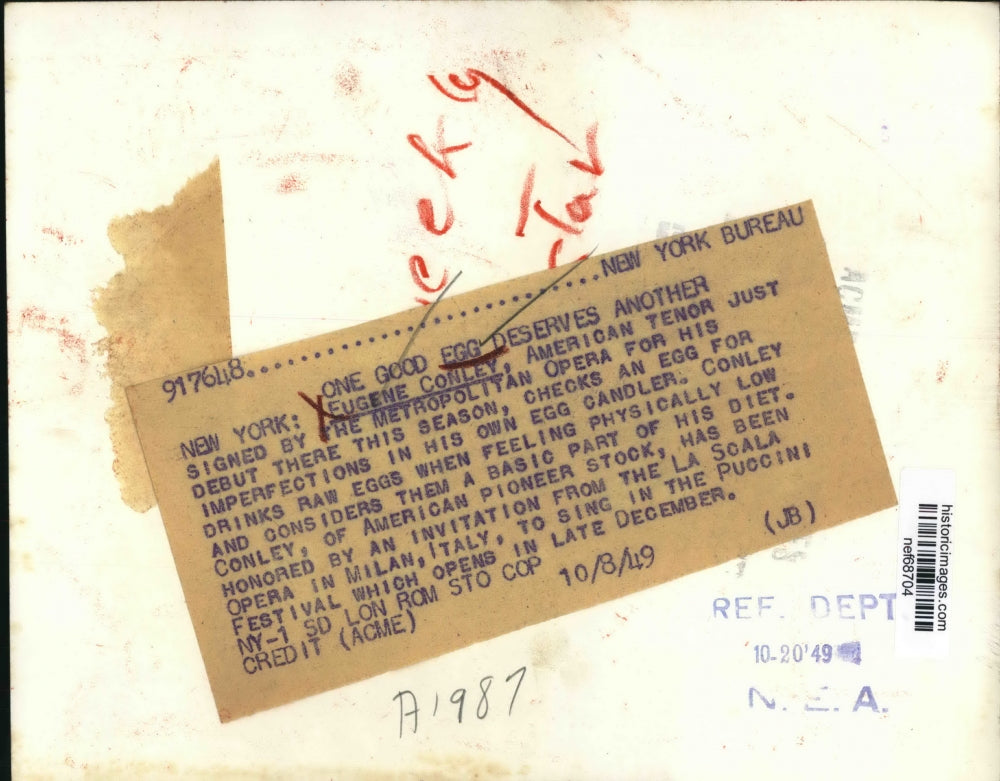 917648..............................NEW YORK BUREAU
ONE GOOD EGG DESERVES ANOTHER
NEW YORK: EUGENE CONLEY, AMERICAN TENOR JUST
SIGNED BY THE METROPOLITAN OPERA FOR HIS
DEBUT THERE THIS SEASON, CHECKS AN EGG FOR
IMPERFECTIONS IN HIS OWN EGG CANDLER. CONLEY
DRINKS RAW EGGS WHEN FEELING PHYSICALLY LOW
AND CONSIDERS THEM A BASIC PART OF HIS DIET.
CONLEY, OF AMERICAN PIONEER STOCK, HAS BEEN
HONORED BY AN INVITATION FROM THE LA SCALA
OPERA IN MILAN, ITALY, TO SING IN THE PUCCINI
FESTIVAL WHICH OPENS IN LATE DECEMBER.
NY-1 SD LON ROM STO COP 10/8/49 (JB)
CREDIT (ACME)
historicimages.com
nef68704
REF. DEPT
10-20'49
N. E. A.
A1987